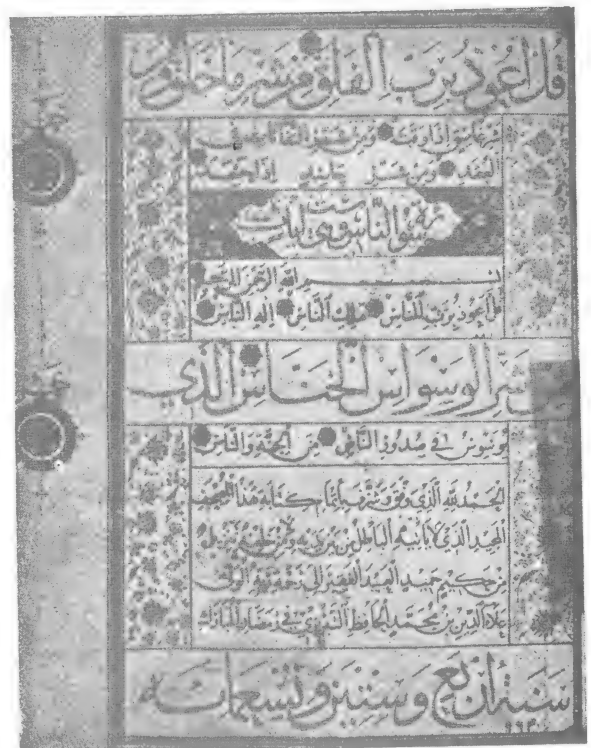 قُل أَعُوذُ بِرَبِّ الْفَلَقِ مِن شَرِّ مَا خَلَقَ وَمِن
شَرِّ غَاسِقٍ إِذَا وَقَبَ وَمِن شَرِّ النَّفَّاثَاتِ فِي
الْعُقَدِ وَمِن شَرِّ حَاسِدٍ إِذَا حَسَدَ
سورة الناس وهي ست آيات
بسم الله الرحمن الرحيم
قل أَعُوذُ بِرَبِّ النَّاسِ مَلِكِ النَّاسِ إِلَهِ النَّاسِ
مِن شَرِّ الْوَسْوَاسِ الْخَنَّاسِ الَّذِي
يُوَسْوِسُ فِي صُدُورِ النَّاسِ مِنَ الْجِنَّةِ وَالنَّاسِ
الحمد لله الذي وفق وشرف باتمام كتابة هذا المصحف
المجيد الذي لا يأتيه الباطل من بين يديه ولا من خلفه تنزيل
من حكيم حميد العبد الفقير إلى رحمة ربه
علاء الدين بن محمد الحافظ التبريزي في رمضان المبارك
سنة أربع وستين وتسعمائة
٩٦٤